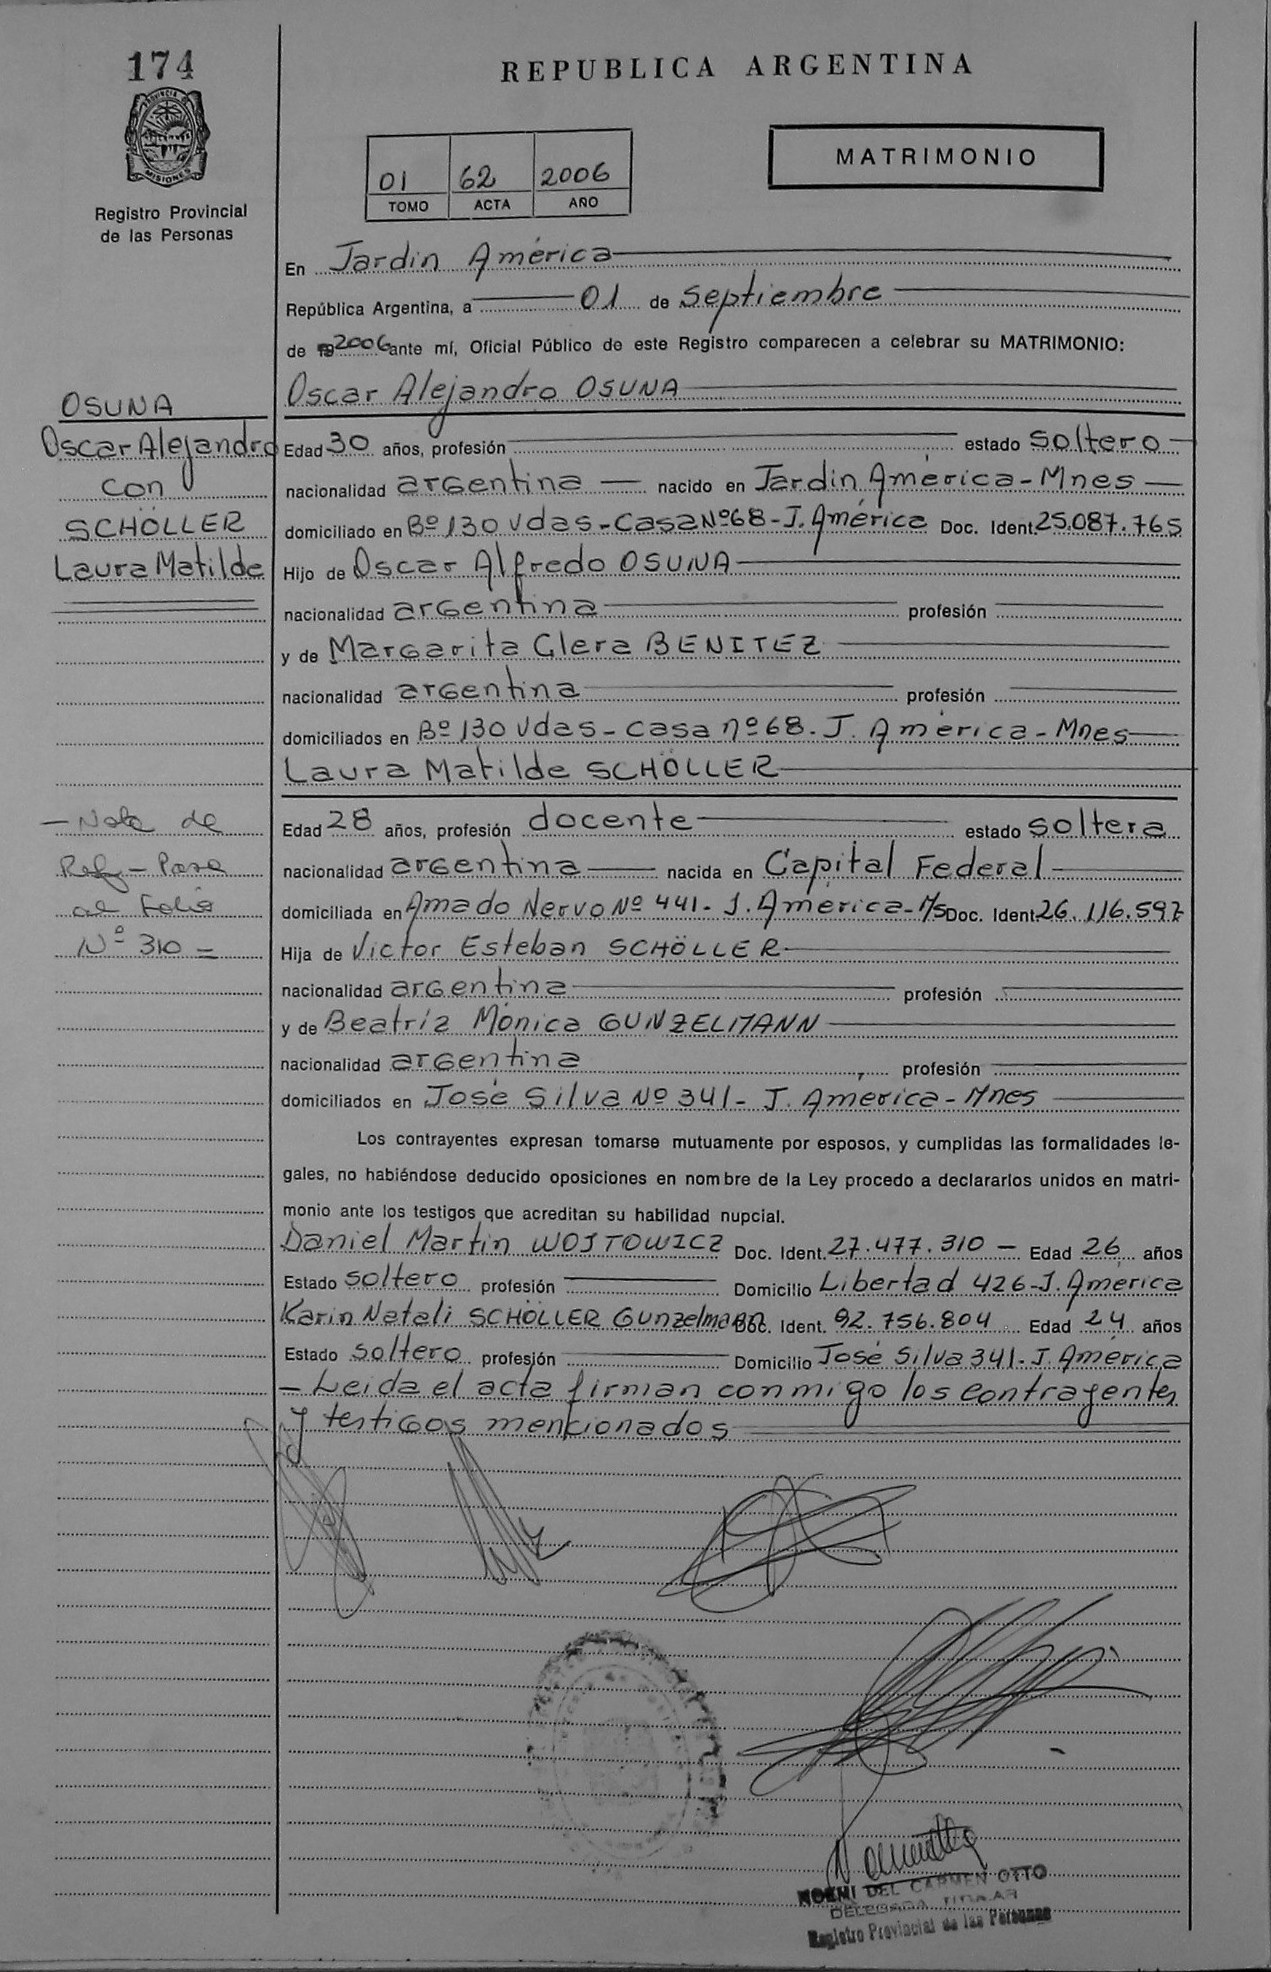 174
PROVINCIA DE
MISIONES
Registro Provincial
de las Personas
REPUBLICA ARGENTINA
01 62 2006
TOMO ACTA AÑO
MATRIMONIO
En Jardin América
República Argentina, a 01 de septiembre
de 2006 ante mí, Oficial Público de este Registro comparecen a celebrar su MATRIMONIO:
Oscar Alejandro OSUNA
Edad 30 años, profesión estado soltero
nacionalidad argentina nacido en Jardin América - Mnes
domiciliado en Bº 130 Vdas - Casa Nº 68 - J. América Doc. Ident. 25.087.765
Hijo de Oscar Alfredo OSUNA
nacionalidad argentina profesión
y de Margarita Clera BENITEZ
nacionalidad argentina profesión
domiciliados en Bº 130 Vdas - casa nº 68 - J. América - Mnes
Laura Matilde SCHÖLLER
Edad 28 años, profesión docente estado soltera
nacionalidad argentina nacida en Capital Federal
domiciliada en Amado Nervo Nº 441 - J. América - M/s Doc. Ident. 26.116.597
Hija de Victor Esteban SCHÖLLER
nacionalidad argentina profesión
y de Beatríz Mónica GUNZELMANN
nacionalidad argentina profesión
domiciliados en José Silva Nº 341 - J. América - Mnes
Los contrayentes expresan tomarse mutuamente por esposos, y cumplidas las formalidades le-
gales, no habiéndose deducido oposiciones en nombre de la Ley procedo a declararlos unidos en matri-
monio ante los testigos que acreditan su habilidad nupcial.
Daniel Martín WOJTOWICZ Doc. Ident. 27.477.310 - Edad 26 años
Estado soltero profesión Domicilio Libertad 426 - J. América
Karin Natali SCHÖLLER Gunzelmann Doc. Ident. 92.756.804 Edad 24 años
Estado soltero profesión Domicilio José Silva 341 - J. América
- Leida el acta firman conmigo los contrayentes
y testigos mencionados
OSUNA
Oscar Alejandro
con
SCHÖLLER
Laura Matilde
- Nota de
Ref - Pasa
al Folio
Nº 310 =
NOEMI DEL CARMEN OTTO
DELEGADA TITULAR
Registro Provincial de las Personas